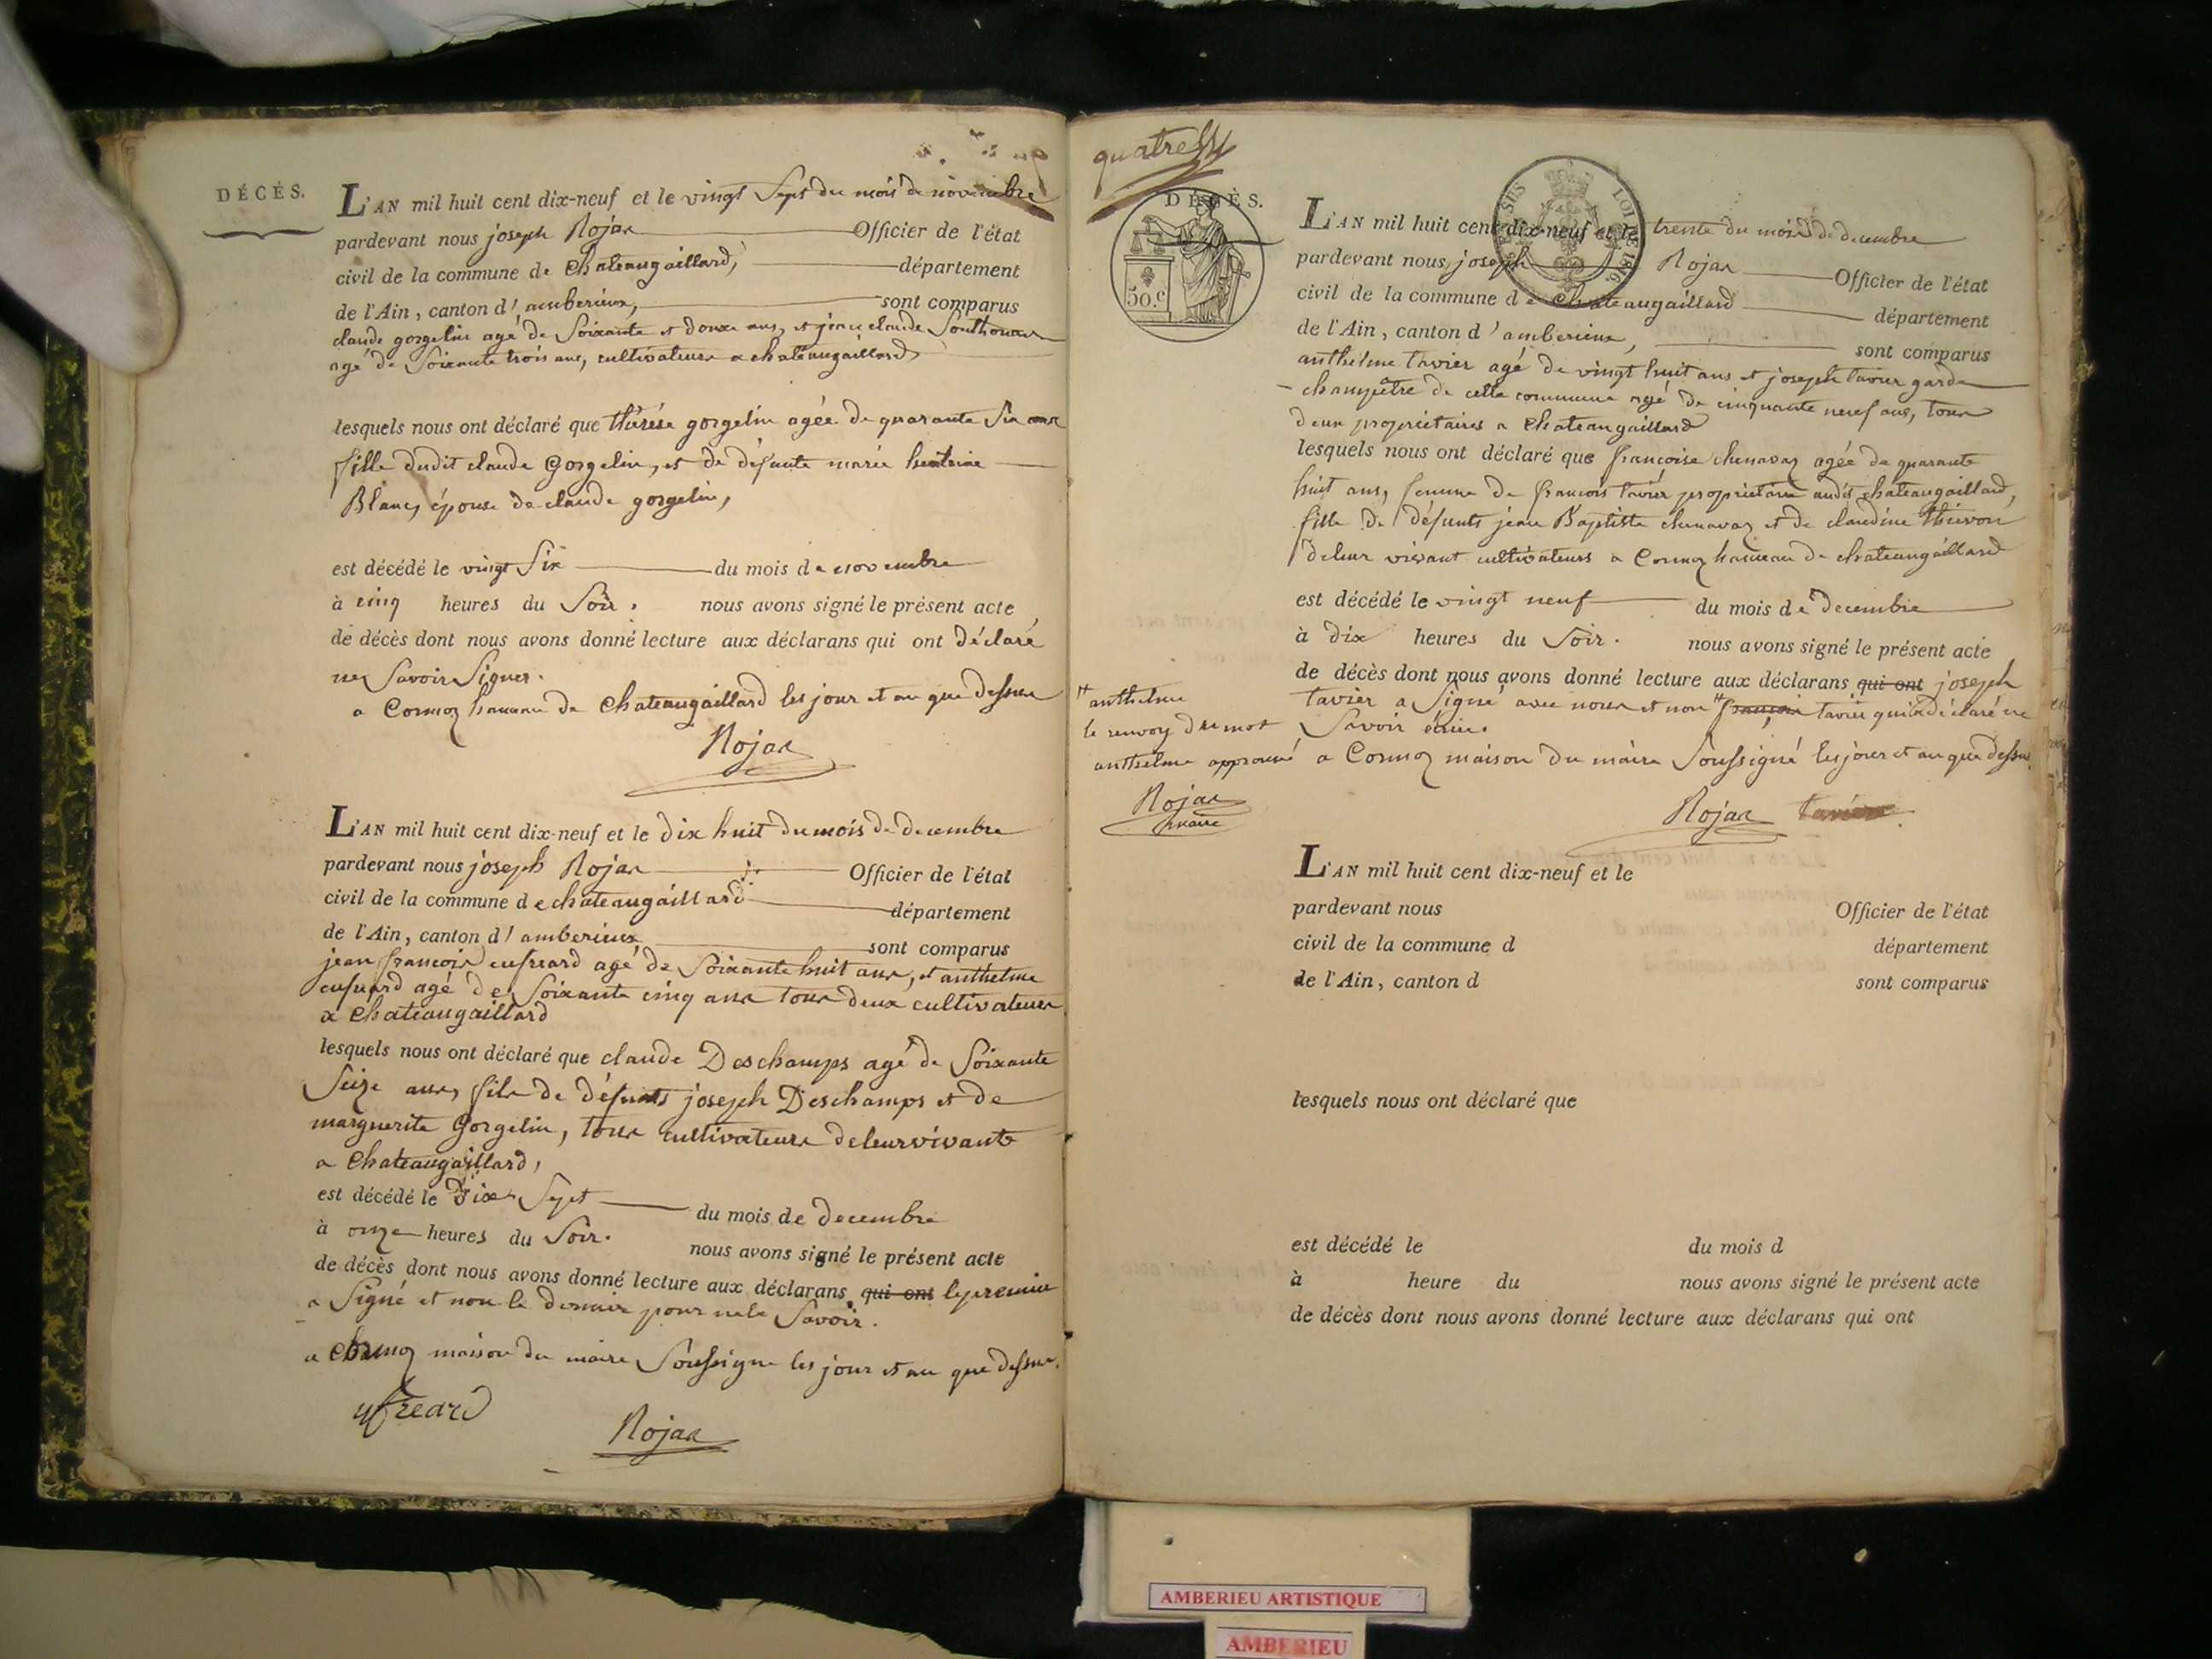 DÉCÉS.
L'AN mil huit cent dix-neuf et le vingt Sept du mois de novembre
pardevant nous joseph Rojas Officier de l'état
civil de la commune de Chateaugaillard, département
de l'Ain, canton d'amberieux, sont comparus
claude gorgelin agé de Soixante et douze ans, et jean claude
agé de Soixante trois ans, cultivateurs a chateaugaillard
lesquels nous ont déclaré que thérése gorgelin agée de quarante Six ans
fille dudit claude Gorgelin, et de défunte marie
Blanc, épouse de claude gorgelin,
est décédé le vingt Six du mois de novembre
à cinq heures du Soir. nous avons signé le présent acte
de décès dont nous avons donné lecture aux déclarans qui ont déclaré
ne Savoir Signer.
a Cormoz hameau de Chateaugaillard les jour et an que dessus
Rojas
L'AN mil huit cent dix-neuf et le dix huit du mois de decembre
pardevant nous joseph Rojas Officier de l'état
civil de la commune de chateaugaillard département
de l'Ain, canton d'amberieux sont comparus
jean françois cufreard agé de Soixante huit ans, et anthelme
cufreard agé de Soixante cinq ans tous deux cultivateurs
a Chateaugaillard
lesquels nous ont déclaré que claude Deschamps agé de Soixante
Seize ans, fils de défunts joseph Deschamps et de
marguerite Gorgelin, tous cultivateurs de leur vivants
a Chateaugaillard,
est décédé le Dix Sept du mois de decembre
à onze heures du Soir. nous avons signé le présent acte
de décès dont nous avons donné lecture aux déclarans qui ont le premier
a Signé et non le dernier pour ne le Savoir.
a Cormoz maison du maire Soussigné les jour et an que dessus.
cufreard
Rojas
DÉCÈS.
50.c
LOI DE 1816.
L'AN mil huit cent dix-neuf et le trente du mois de decembre
pardevant nous joseph Rojas Officier de l'état
civil de la commune de Chateaugaillard département
de l'Ain, canton d'amberieux, sont comparus
anthelme tavier agé de vingt huit ans et joseph tavier garde
champêtre de cette commune agé de cinquante neuf ans, tous
deux propriétaires a Chateaugaillard
lesquels nous ont déclaré que françoise chenavaz agée de quarante
huit ans, femme de francois tavier propriétaire audit chateaugaillard,
fille de défunts jean Baptiste chenavaz et de claudine thievon
de leur vivant cultivateurs a Cormoz hameau de chateaugaillard
est décédé le vingt neuf du mois de decembre
à dix heures du Soir. nous avons signé le présent acte
de décès dont nous avons donné lecture aux déclarans qui ont joseph
tavier a Signé avec nous et non # françois tavier qui a déclaré ne
Savoir écrire.
a Cormoz maison du maire Soussigné les jour et an que dessus.
# anthelme
le renvoy du mot
anthelme approuvé
Rojas
maire
Rojas tavier
L'AN mil huit cent dix-neuf et le
pardevant nous Officier de l'état
civil de la commune d département
de l'Ain, canton d sont comparus
lesquels nous ont déclaré que
est décédé le du mois d
à heure du nous avons signé le présent acte
de décès dont nous avons donné lecture aux déclarans qui ont
AMBERIEU ARTISTIQUE
AMBERIEU